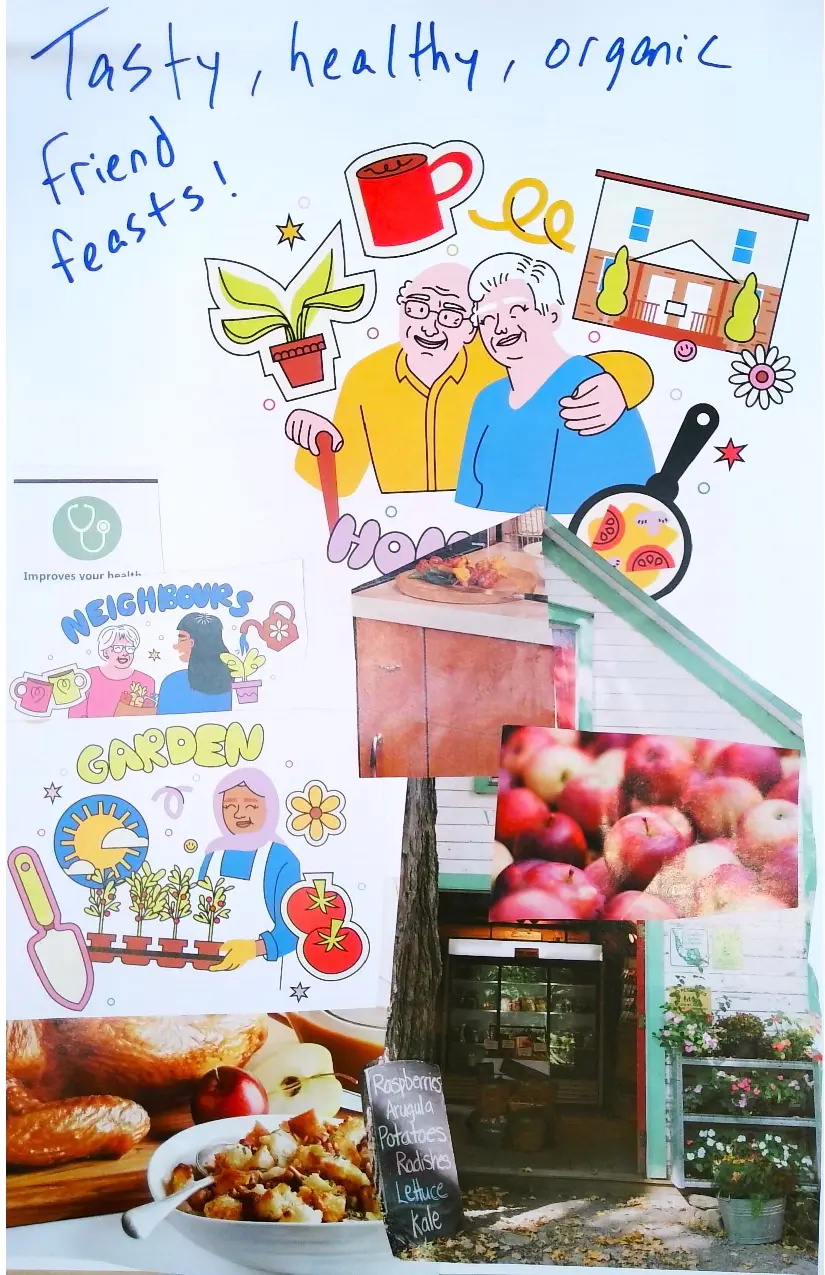 Tasty, healthy, organic
friend
feasts!
Improves your health
NEIGHBOURS
GARDEN
Raspberries
Arugula
Potatoes
Radishes
Lettuce
Kale